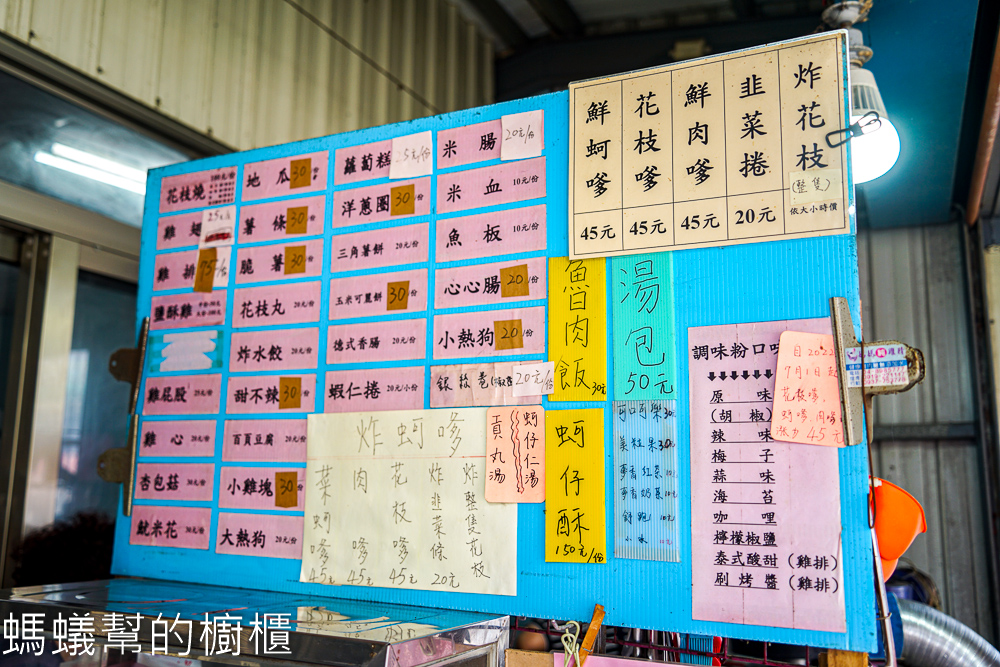 花枝燒 100元/份
雞翅 25元/
雞排 75元/份
鹽酥雞
雞屁股 25元/份
雞心 20元/份
杏包菇 30元/份
魷米花 30元/份
地瓜 30/份
薯條 30/份
脆薯 30/份
花枝丸 20元/份
炸水餃 20元/份
甜不辣 30/份
百頁豆腐 20元/份
小雞塊 30/份
大熱狗 20元/份
蘿蔔糕 25元/份
洋蔥圈 30/份
三角薯餅 20元/份
玉米可麗餅 30/份
德式香腸 20元/份
蝦仁捲 20元/小份
米腸 20元/份
米血 10元/份
魚板 10元/份
心心腸 20/份
小熱狗 20/份
銀絲卷 20元/份
鮮蚵嗲 45元
花枝嗲 45元
鮮肉嗲 45元
韭菜捲 20元
炸花枝 (整隻) 依大小時價
魯肉飯 30元
湯包 50元
蚵仔酥 150元/份
可口可樂 30元
美粒果 30元
麥香紅茶 10元
麥香奶茶 10元
舒跑
小
貢丸湯
蚵仔仁湯
炸蚵嗲
菜蚵嗲 45元
肉嗲 45元
花枝嗲 45元
炸韭菜條 20元
炸整隻花枝
調味粉口味
原味
(胡椒)
辣味
梅子
蒜味
海苔
咖哩
檸檬椒鹽
泰式酸甜(雞排)
刷烤醬(雞排)
自2022
9月1日起
花枝嗲.
蚵嗲 肉嗲
漲為45元
螞蟻幫的櫥櫃